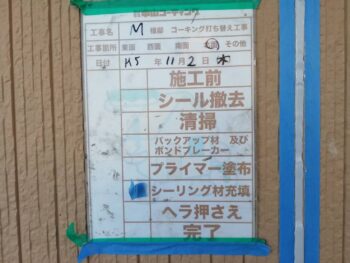 工事名 M 様邸 コーキング打ち替え工事
工事箇所 東面 西面 南面 その他
日付 H5 年 11月 2日 水
施工前
シール撤去
清掃
バックアップ材 及び
ボンドブレーカー
プライマー塗布
シーリング材充填
ヘラ押さえ
完了